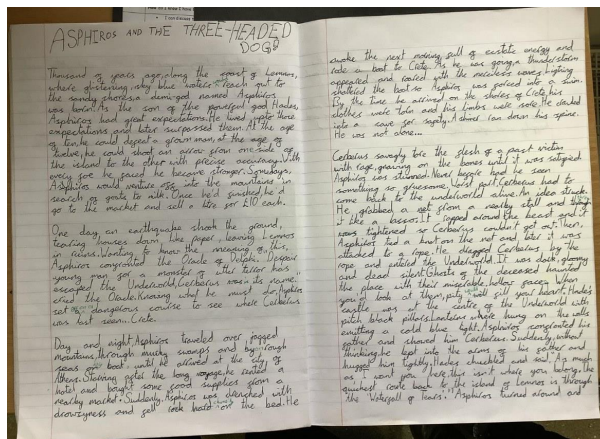 ASPHIROS AND THE THREE-HEADED
DOG
Thousand of years ago, along the coast of Lemnos,
where glistening, sky blue waters reach out to
the sandy shores, a demi-god named Asphiros
was born. As the son of the powerful god, Hades,
Asphiros had great expectations. He lived upto those
expectations, and later surpassed them. At the age
of ten, he could defeat a grown man, at the age of
twelve, he could shoot an arrow from one side of
the island to the other with precise accuracy. With
every foe he faced he became stronger. Somedays,
Asphiros would venture off into the mountains in
search of goats to milk. Once he'd finished, he'd
go to the market and sell a litre for £10 each.
One day, an earthquake shook the ground,
tearing houses down like paper, leaving Lemnos
in ruins. Wanting to know the meaning of this,
Asphiros confronted the Oracle of Delphi. "Despair
young man for a monster of utter terror has
escaped the Underworld, Cerberus was its name."
cried the Oracle. Knowing what he must do, Asphiros
set dangerous course to see where Cerberus
was last seen... Crete.
Day and night Asphiros traveled over jagged
mountains, through murky swamps and by rough
seas on boat, until he arrived at the city of
Athens. Starving after the long voyage, he rented a
hotel and bought some food supplies from a
nearby market. Suddenly, Asphiros was drenched with
drowzyness and fell rock hard on the bed. He
awoke the next morning full of ecstatic energy and
rode a boat to Crete. As he was going, a thunderstorm
appeared and roared with merciless waves. Lighting
shattered the boat so Asphiros was forced into a swim.
By the time he arrived on the shores of Crete, his
clothes were torn and his limbs were sore. He crawled
into a cave for safety. A shiver ran down his spine.
He was not alone...
Cerberus savagely tore the flesh of a past victim
with rage, gnawing on the bones until it was satisfied
Asphiros was stunned. Never before had he seen
something so gruesome. Worst part, Cerberus had to
come back to the underworld alive. An idea struck.
He grabbed a net from a nearby stall and
it like a lasso. It rapped around the beast and it
was tightened so Cerberus couldn't get out. Then,
Asphiros tied a knot on the net and later it was
attached to a rope. He dragged Cerberus by the
rope and entered the Underworld. It was dark, gloomy
and dead silent. Ghosts of the deceased haunted
the place with their miserable, hollow faces. When
you'd look at them, pity will fill your heart. Hades's
castle was at the centre of the Underworld with
pitch black pillars. Lanterns where hung on the walls
emitting a cold blue light. Asphiros confronted his
father and showed him Cerberus. Suddenly, without
thinking, he lept into the arms of his father and
hugged him tightly. Hades chuckled and said, "As much
as I want you here, this isn't where you belong, the
quickest route back to the island of Lemnos is through
the 'Waterfall of Tears'." Asphiros turned around and